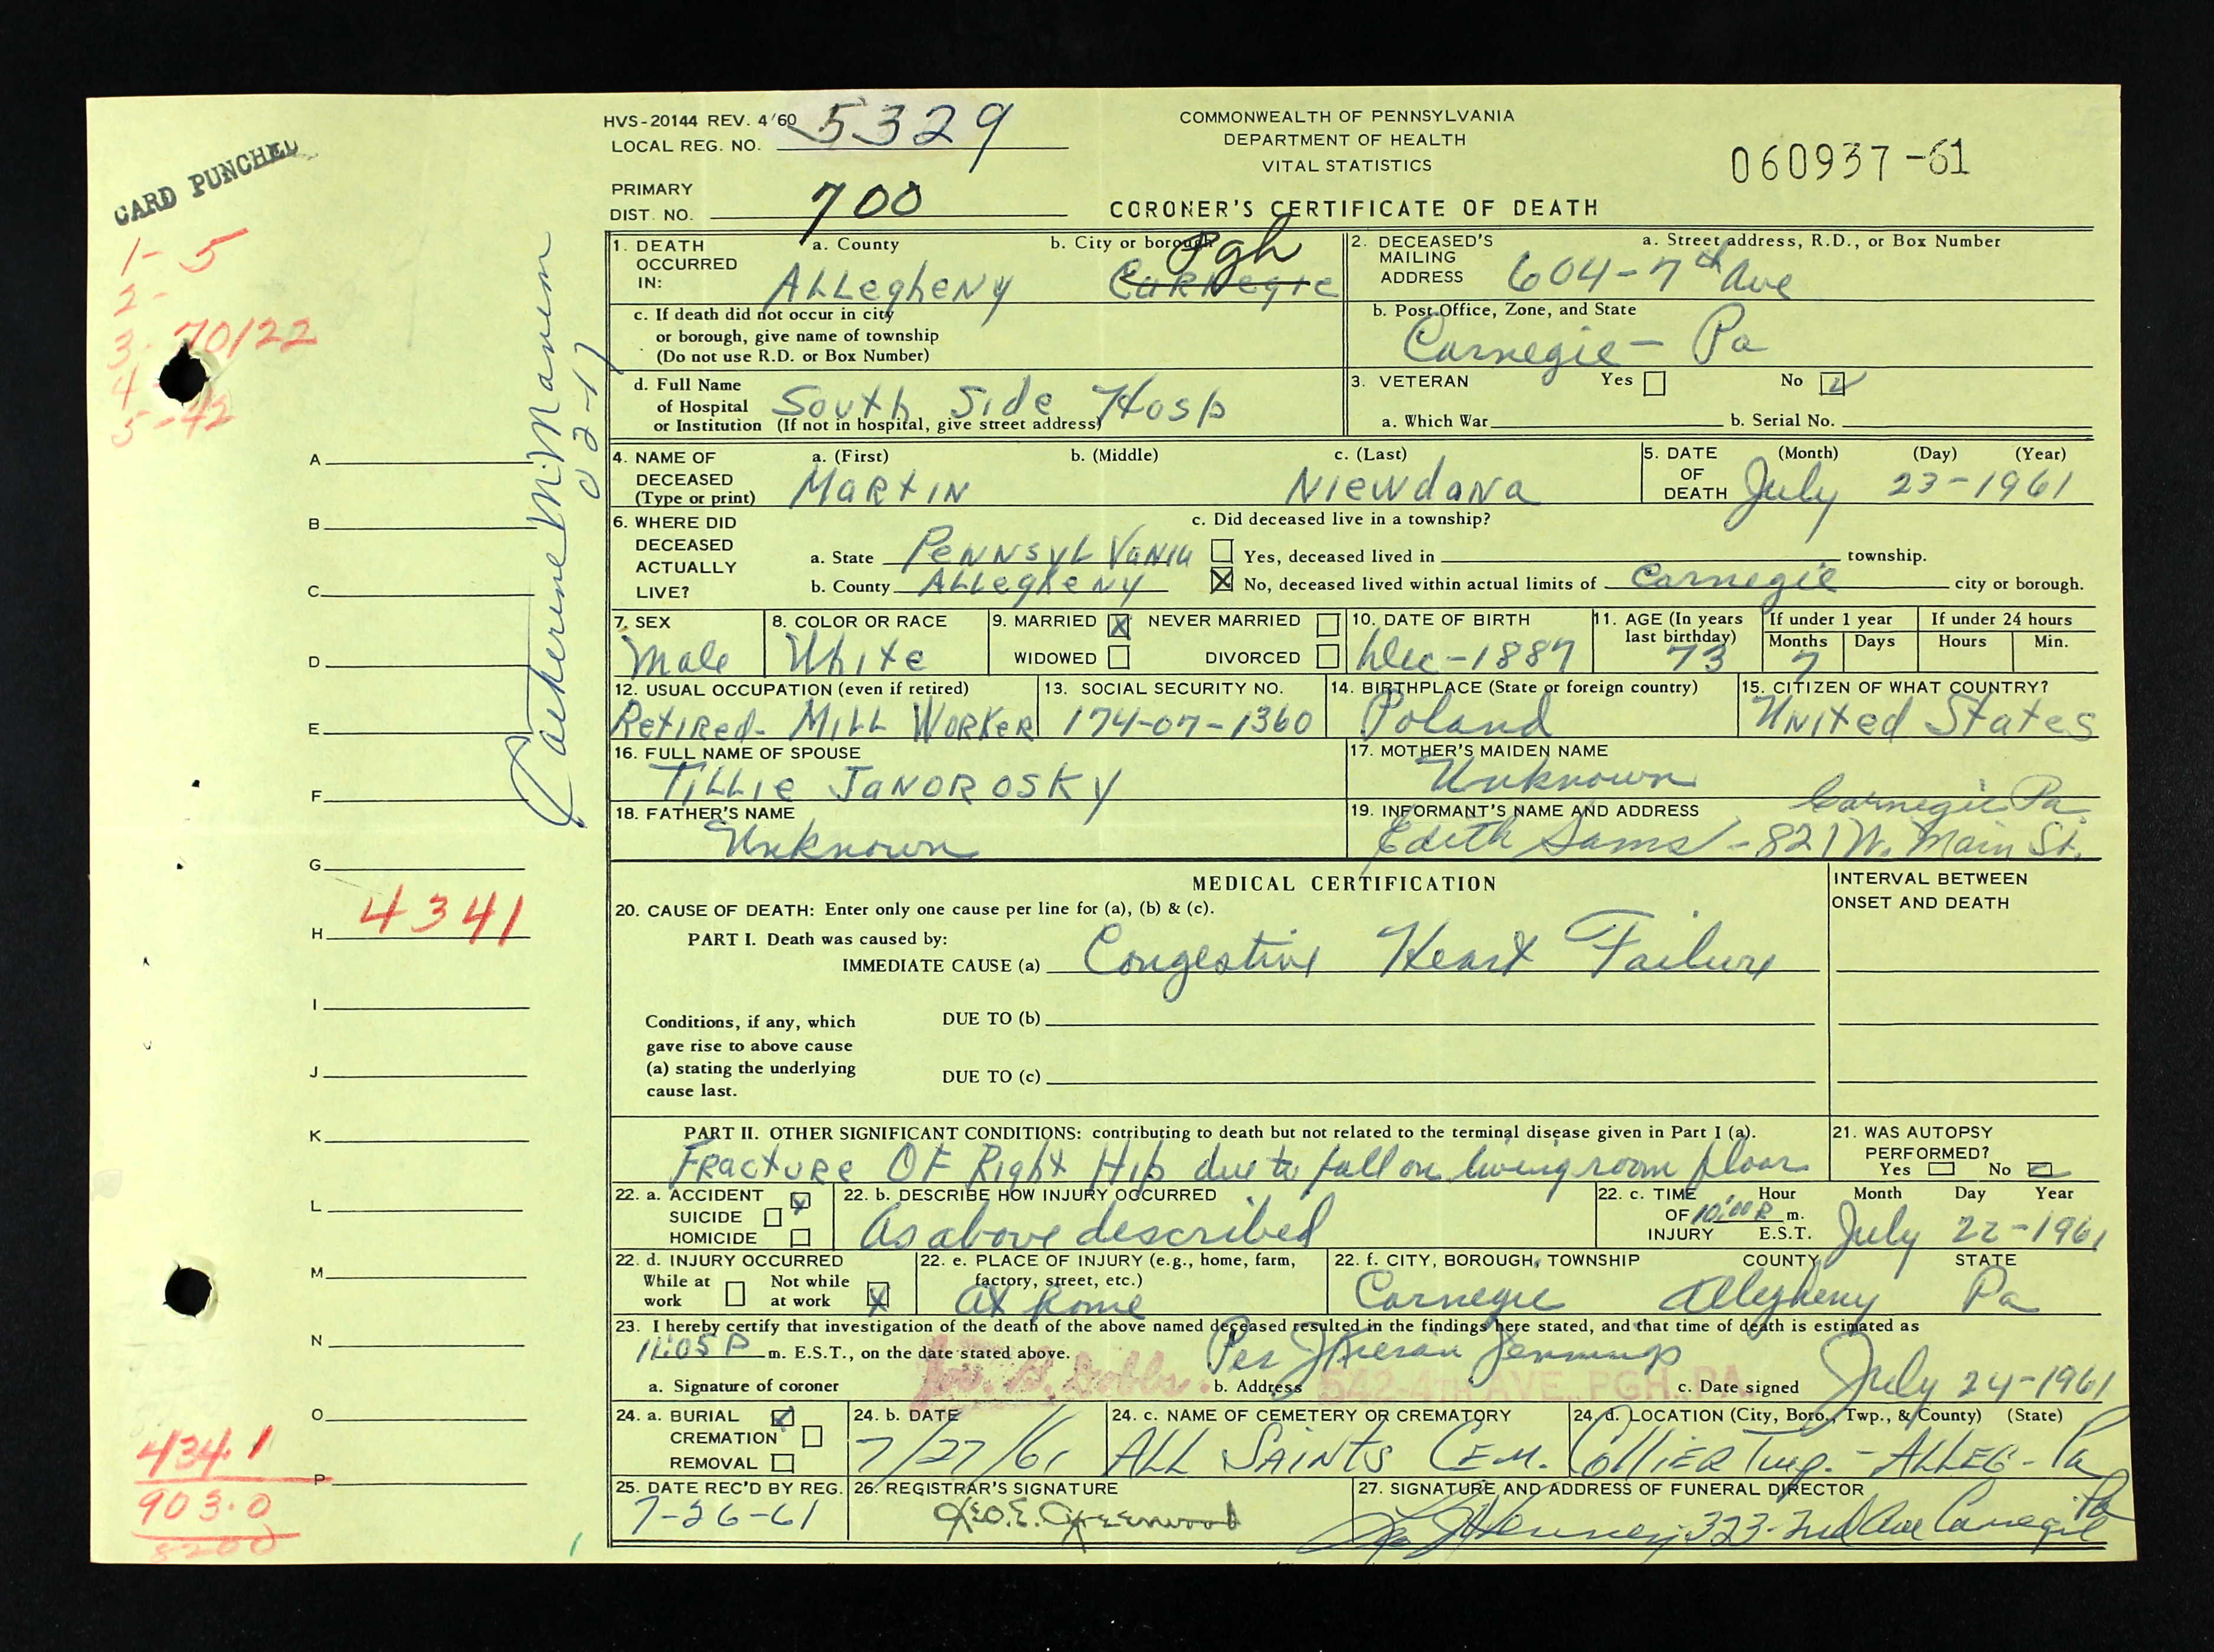 CARD PUNCHED
1- 5
2-
3- 70122
4
5-42
HVS-20144 REV. 4/60
LOCAL REG. NO. 5329
PRIMARY
DIST. NO. 700
COMMONWEALTH OF PENNSYLVANIA
DEPARTMENT OF HEALTH
VITAL STATISTICS
060937-61
CORONER'S CERTIFICATE OF DEATH
1. DEATH OCCURRED IN: a. County Allegheny b. City or borough Carnegie Pgh
2. DECEASED'S MAILING ADDRESS a. Street address, R.D., or Box Number 604-7th Ave
c. If death did not occur in city
or borough, give name of township
(Do not use R.D. or Box Number)
b. Post Office, Zone, and State
Carnegie - Pa
d. Full Name of Hospital or Institution South Side Hosp
(If not in hospital, give street address)
3. VETERAN Yes No
a. Which War b. Serial No.
4. NAME OF DECEASED (Type or print) a. (First) Martin b. (Middle) c. (Last) Niewdana
5. DATE OF DEATH (Month) (Day) (Year) July 23-1961
6. WHERE DID DECEASED ACTUALLY LIVE?
a. State Pennsylvania
b. County Allegheny
c. Did deceased live in a township?
Yes, deceased lived in township.
No, deceased lived within actual limits of Carnegie city or borough.
7. SEX Male
8. COLOR OR RACE White
9. MARRIED X NEVER MARRIED
WIDOWED DIVORCED
10. DATE OF BIRTH Dec-1887
11. AGE (In years last birthday) 73
If under 1 year Months 7 Days
If under 24 hours Hours Min.
12. USUAL OCCUPATION (even if retired) Retired- Mill Worker
13. SOCIAL SECURITY NO. 174-07-1360
14. BIRTHPLACE (State or foreign country) Poland
15. CITIZEN OF WHAT COUNTRY? United States
16. FULL NAME OF SPOUSE Tillie Janorosky
17. MOTHER'S MAIDEN NAME Unknown
18. FATHER'S NAME Unknown
19. INFORMANT'S NAME AND ADDRESS Carnegie Pa
Edith Sams - 821 W. Main St.
MEDICAL CERTIFICATION
INTERVAL BETWEEN
ONSET AND DEATH
20. CAUSE OF DEATH: Enter only one cause per line for (a), (b) & (c).
PART I. Death was caused by:
IMMEDIATE CAUSE (a) Congestive Heart Failure
Conditions, if any, which
gave rise to above cause
(a) stating the underlying
cause last.
DUE TO (b)
DUE TO (c)
PART II. OTHER SIGNIFICANT CONDITIONS: contributing to death but not related to the terminal disease given in Part I (a).
Fracture Of Right Hip due to fall on living room floor
21. WAS AUTOPSY
PERFORMED?
Yes No
22. a. ACCIDENT
SUICIDE
HOMICIDE
22. b. DESCRIBE HOW INJURY OCCURRED
As above described
22. c. TIME OF INJURY Hour Month Day Year
10:00 P m. E.S.T. July 22-1961
22. d. INJURY OCCURRED
While at work Not while at work X
22. e. PLACE OF INJURY (e.g., home, farm,
factory, street, etc.)
At home
22. f. CITY, BOROUGH, TOWNSHIP COUNTY STATE
Carnegie Allegheny Pa
23. I hereby certify that investigation of the death of the above named deceased resulted in the findings here stated, and that time of death is estimated as
11:05 P m. E.S.T., on the date stated above.
Per J Kieran Jennings
a. Signature of coroner b. Address 542-4TH AVE., PGH., PA. c. Date signed July 24-1961
24. a. BURIAL
CREMATION
REMOVAL
24. b. DATE 7/27/61
24. c. NAME OF CEMETERY OR CREMATORY All Saints Cem.
24. d. LOCATION (City, Boro., Twp., & County) (State) Collier Twp. - Alleg - Pa
25. DATE REC'D BY REG. 7-26-61
26. REGISTRAR'S SIGNATURE Geo. E. Greenwood
27. SIGNATURE AND ADDRESS OF FUNERAL DIRECTOR
323-2nd Ave Carnegie Pa
Catherine McManern
02-17
A
B
C
D
E
F
G
H 4341
I
J
K
L
M
N
O
P
434.1
903.0
8200